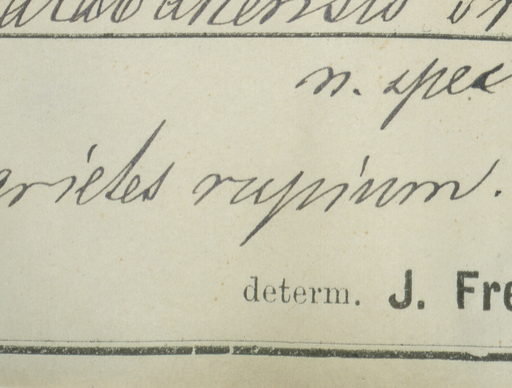 n. spec
arietes rupium.
determ. J. Fre